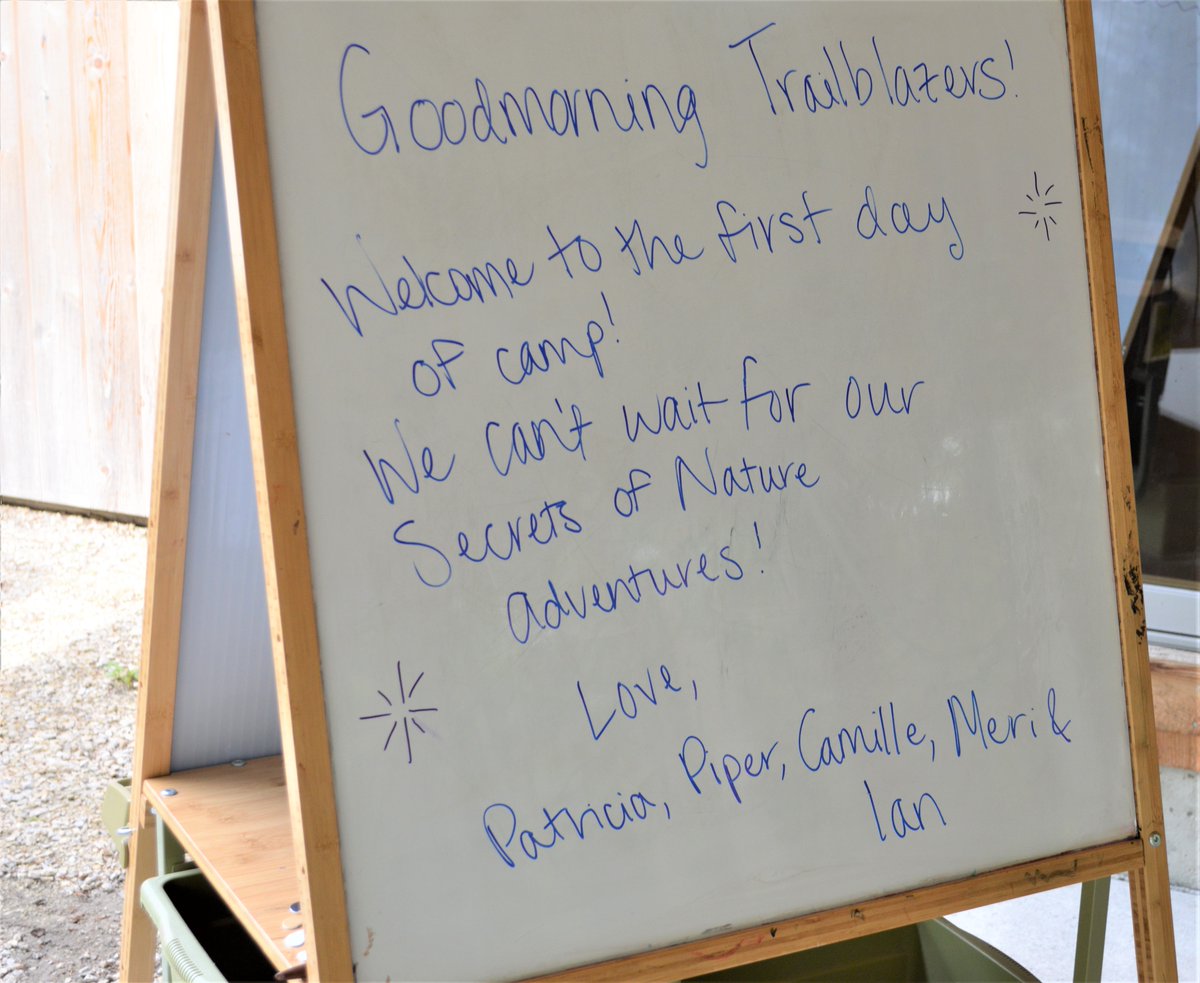 Goodmorning Trailblazers!
Welcome to the first day
of camp!
We can't wait for our
Secrets of Nature
adventures!
Love,
Patricia, Piper, Camille, Meri &
Ian